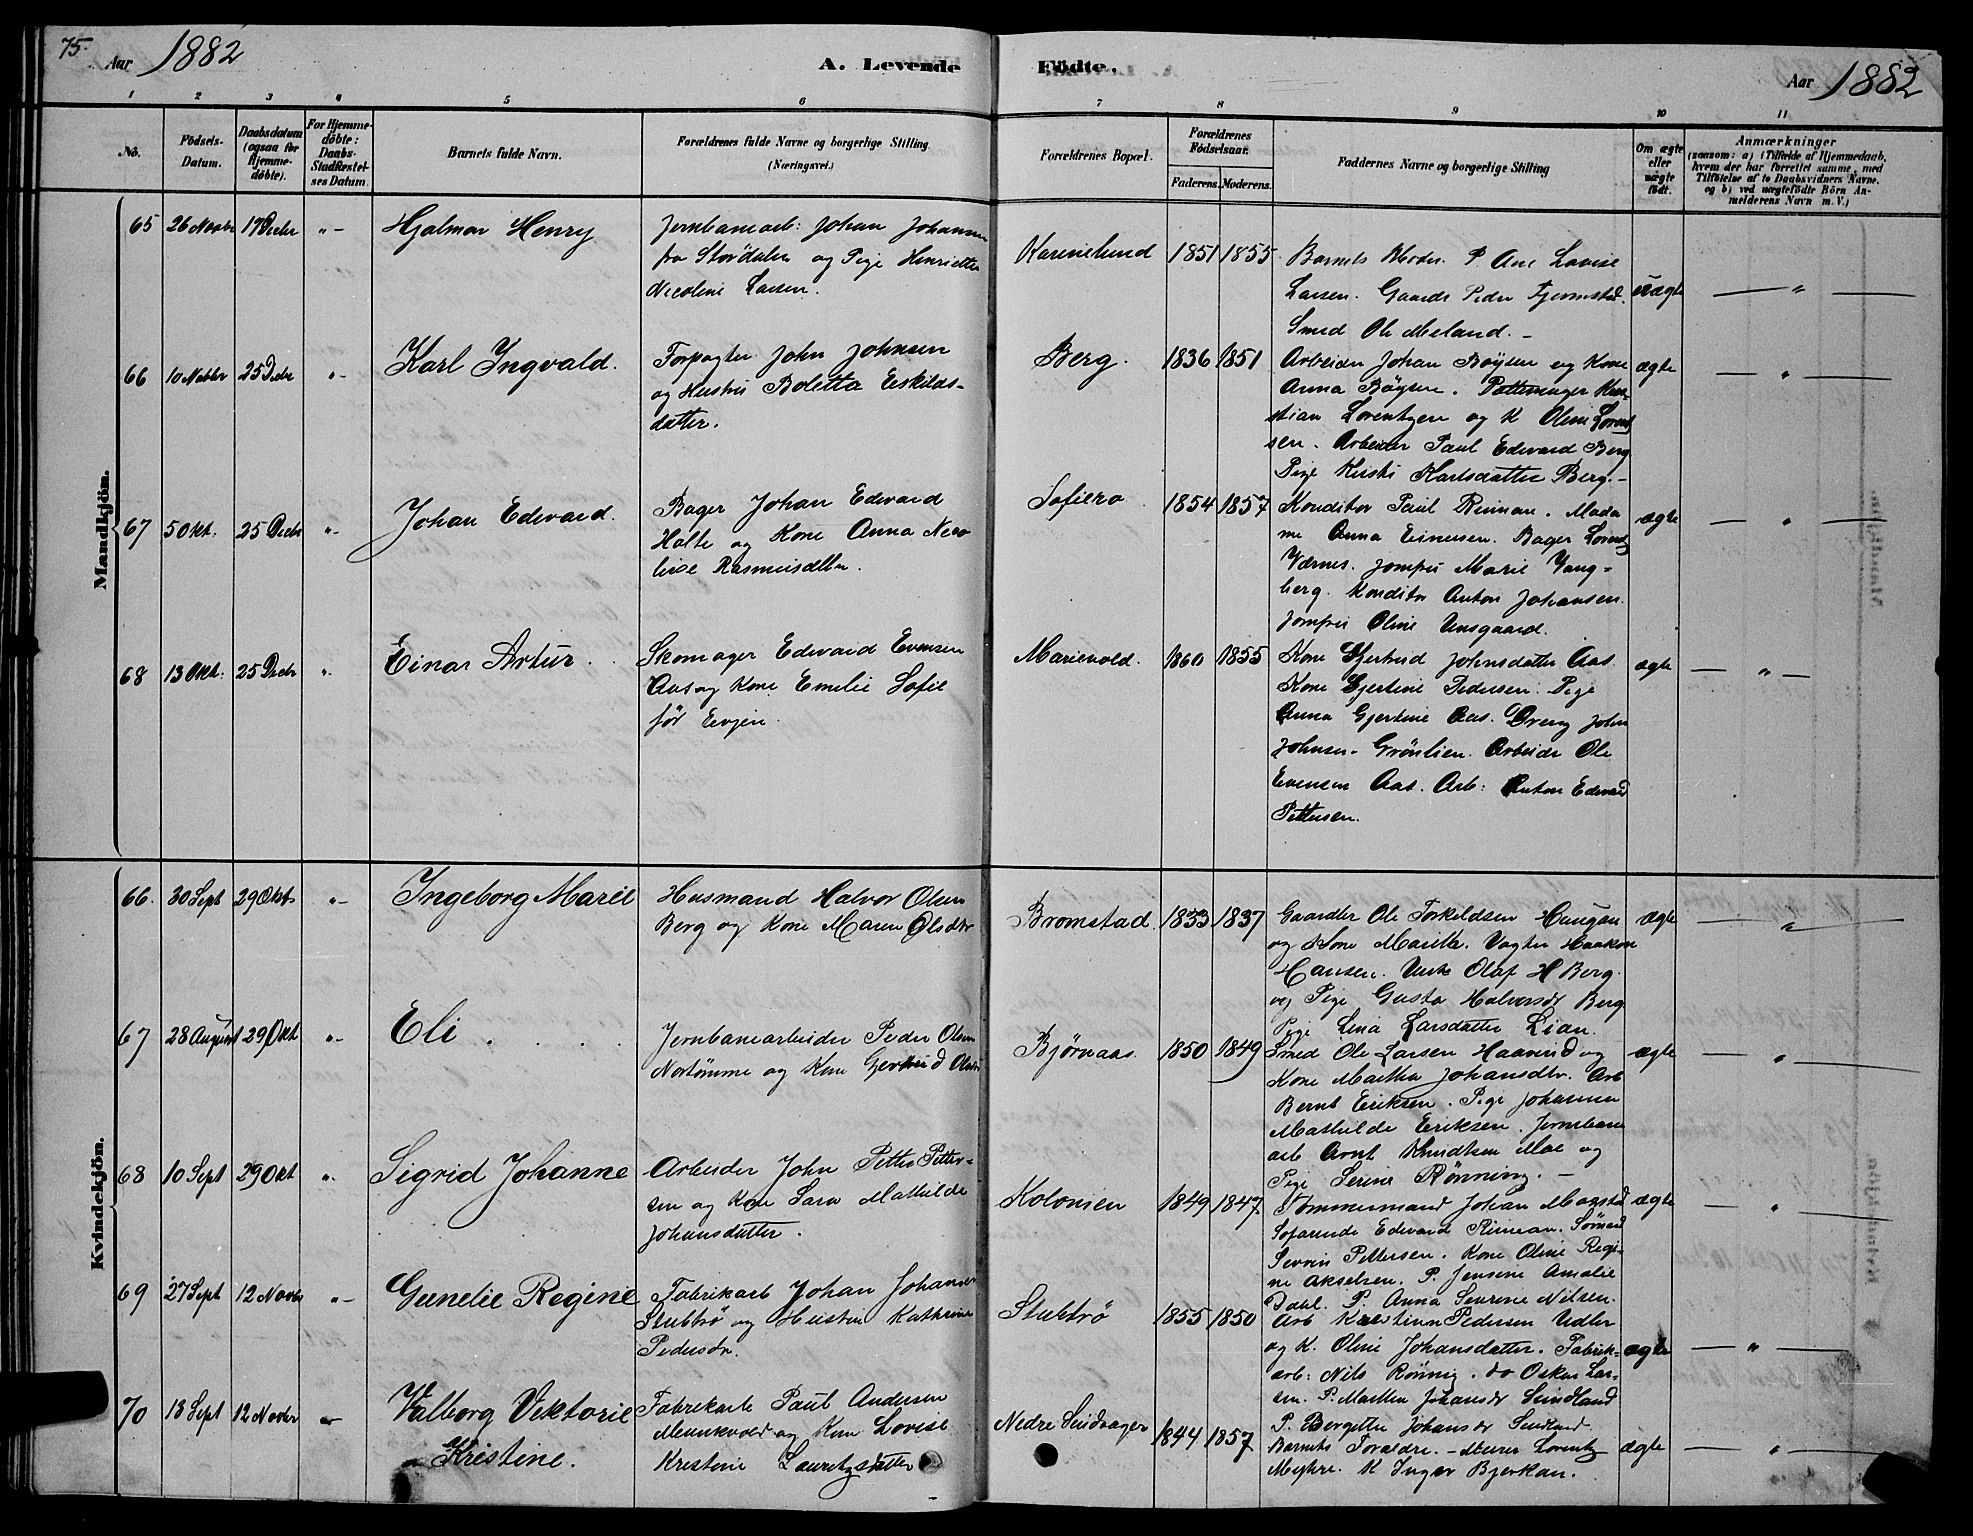 75.
Aar 1882
A. Levende Födte.
Aar 1882
1 2 3 4 5 6 7 8 9 10 11
No.
Födsels-Datum.
Daabsdatum (ogsaa for Hjemme-döbte).
For Hjemme-döbte: Daabs-Stadfæstel-ses Datum.
Barnets fulde Navn.
Forældrenes fulde Navne og borgerlige Stilling (Næringsvei.)
Forældrenes Bopæl.
Forældrenes Födselsaar.
Faderens. Moderens.
Faddernes Navne og borgerlige Stilling
Om ægte eller uægte födt.
Anmærkninger
(saasom: a) i Tilfælde af Hjemmedaab,
hvem der har forrettet samme, med
Tilföielse af to Daabsvidners Navne.
og b) ved uægtefödte Börn An-
melderens Navn m. V.)
Mandkjön.
65 26 Novbr 17 Decbr "- Hjalmar Henry
Jernbanearb: Johan Johansen
fra Størdalen og Pige Henriette
Nicoline Larsen.
Karinelund 1851 1855
Barnets Moder. P. Ane Lovise
Larsen. Gaardb Peder Fjermstad.
Smed Ole Meland. -
uægte "
66 10 Novbr 25 Decbr "- Karl Ingvald.
Forpagter John Johnsen
og Hustru Boletta Eskilds-
datter.
Berg. 1836 1851
Arbeider Johan Böysen og Kone
Anna Böysen. Pottemager Kri-
stian Lorentzen og K Oline Lorent
sen. Arbeider Paul Edvard Berg
Pige Kirsti Karlsdatter Berg. -
ægte "
67 5 Okt. 25 Decbr "- Johan Edvard.
Bager Johan Edvard
Holte og Kone Anna Nico
line Rasmusdtter.
Sofiero 1854 1857
Konditor Paul Rinnan. Mada
me Anna Einersen. Bager Lorentz
Værnes. Jomfru Marie Vang-
berg. Konditor Anton Johansen.
Jomfru Oline Unsgaard.
ægte "
68 13 Okt: 25 Decbr ". Einar Artur.
Skomager Edvard Evensen
Aas og Kone Emilie Sofie
før Evjen.
Marievold. 1860 1855
Kone Gjertrud Johnsdatter Aas.
Kone Gjertine Pedersen. Pige
Anna Gjertine Aas. Dreng John
Johnsen Grönlien. Arbeider Ole
Evensen Aas. Arb: Anton Edvard
Pettersen.
ægte "
Kvindekjön.
66. 30 Sept 29 Okt "- Ingeborg Marie
Husmand Halvor Olsen
Berg og Kone Maren Olsdtr
Bromstad. 1833 1837
Gaardbr Ole Torkildsen Haugan
og Kone Marith. Vogter Haakon
Hansen. Unk Olaf H Berg.
og Pige Gusta Halvorsdr Berg
Pige Lina Larsdatter Lian.
ægte "
67 28 August 29 Okt "- Eli
Jernbanearbeider Peder Olsen
Nortömme og Kone Gertrud Olsdr
Bjørnaas. 1850 1849
Smed Ole Larsen Haanrud og
Kone Martha Johansdtr. Arb
Bernt Eriksen. Pige Johanna
Mathilde Eriksen. Jernbane
arb Arnt Knudtsen Moe og
Pige Serine Rønning. -
ægte "
68 10 Sept 29 Okt ". Sigrid Johanne
Arbeider John Petter Petter-
sen og Kone Sara Mathilde
Johansdatter.
Kolonien 1849 1847
Tömmermand Johan Mogstad
Sofarende Edvard Rinnan. Sömand
Severin Pettersen. Kone Oline Regi-
ne Akselsen. P. Jensine Amalie
Dahl. P. Anna Severine Nilsen.
ægte "
69 27 Sept 12 Novbr "- Gunelie Regine
Fabrikarb Johan Johansen
Stubbrø og Hustru Kathrine
Pedersdr.
Stubbrø 1855 1850
Arb Kristian Pedersen Udler
og K. Oline Johansdatter. Fabrik-
arb: Nils Rönnig. do Oskar Lar-
sen. P. Martha Johansdr Sundland
P. Bergitte Johansdr Sundland
ægte "
70 13 Sept 12 Novbr "- Valborg Viktorie
Kristine.
Fabrikarb Paul Andersen
Munkvold og Kone Lovise
Kristine Lauritzsdatter
Nedre Sandsager 1844 1857
Barnets Foraldre. - Murer Lorentz
Myhre. K Inger Bjerkan.
ægte "